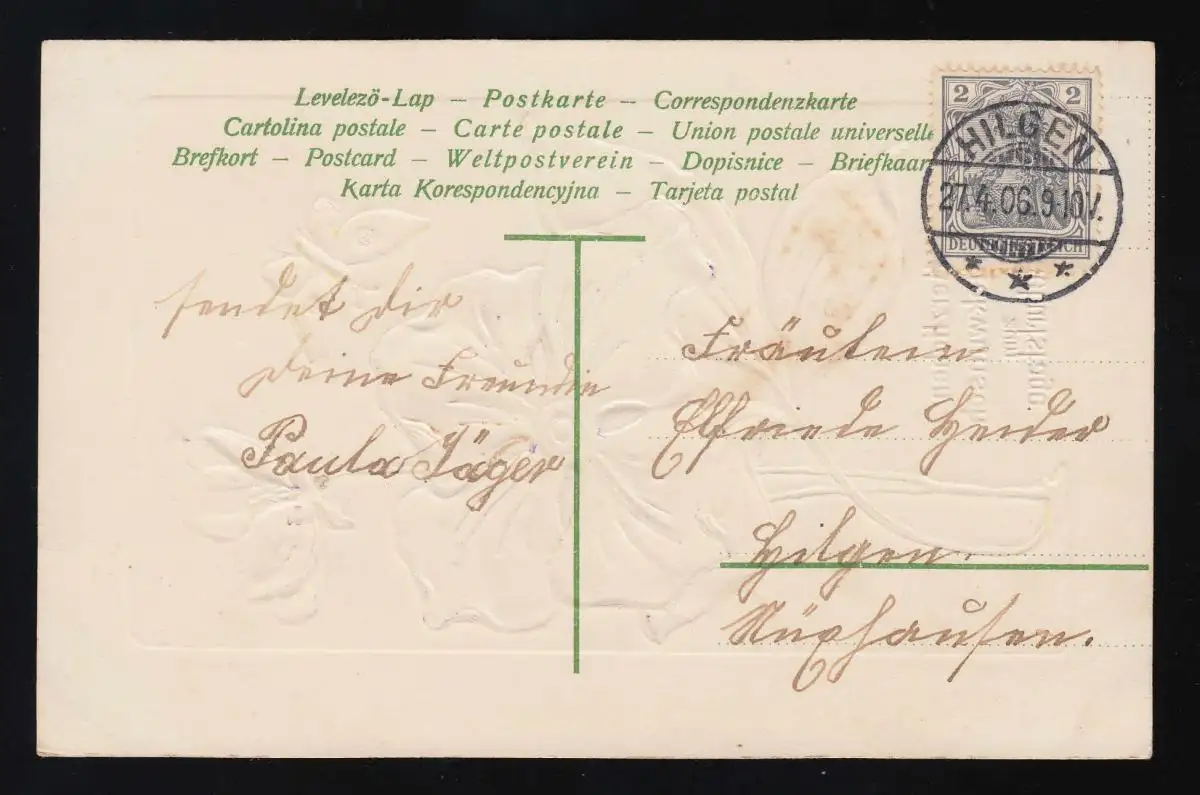 Levelező-Lap – Postkarte – Correspondenzkarte
Cartolina postale – Carte postale – Union postale universelle
Brefkort – Postcard – Weltpostverein – Dopisnice – Briefkaart
Karta Korespondencyjna – Tarjeta postal
2 2
DEUTSCHES REICH
HILGEN
27.4.06.9-10V.
* * *
sendet dir
deine Freundin
Paula Jäger
Fräulein
Elfriede Heider
Hilgen.